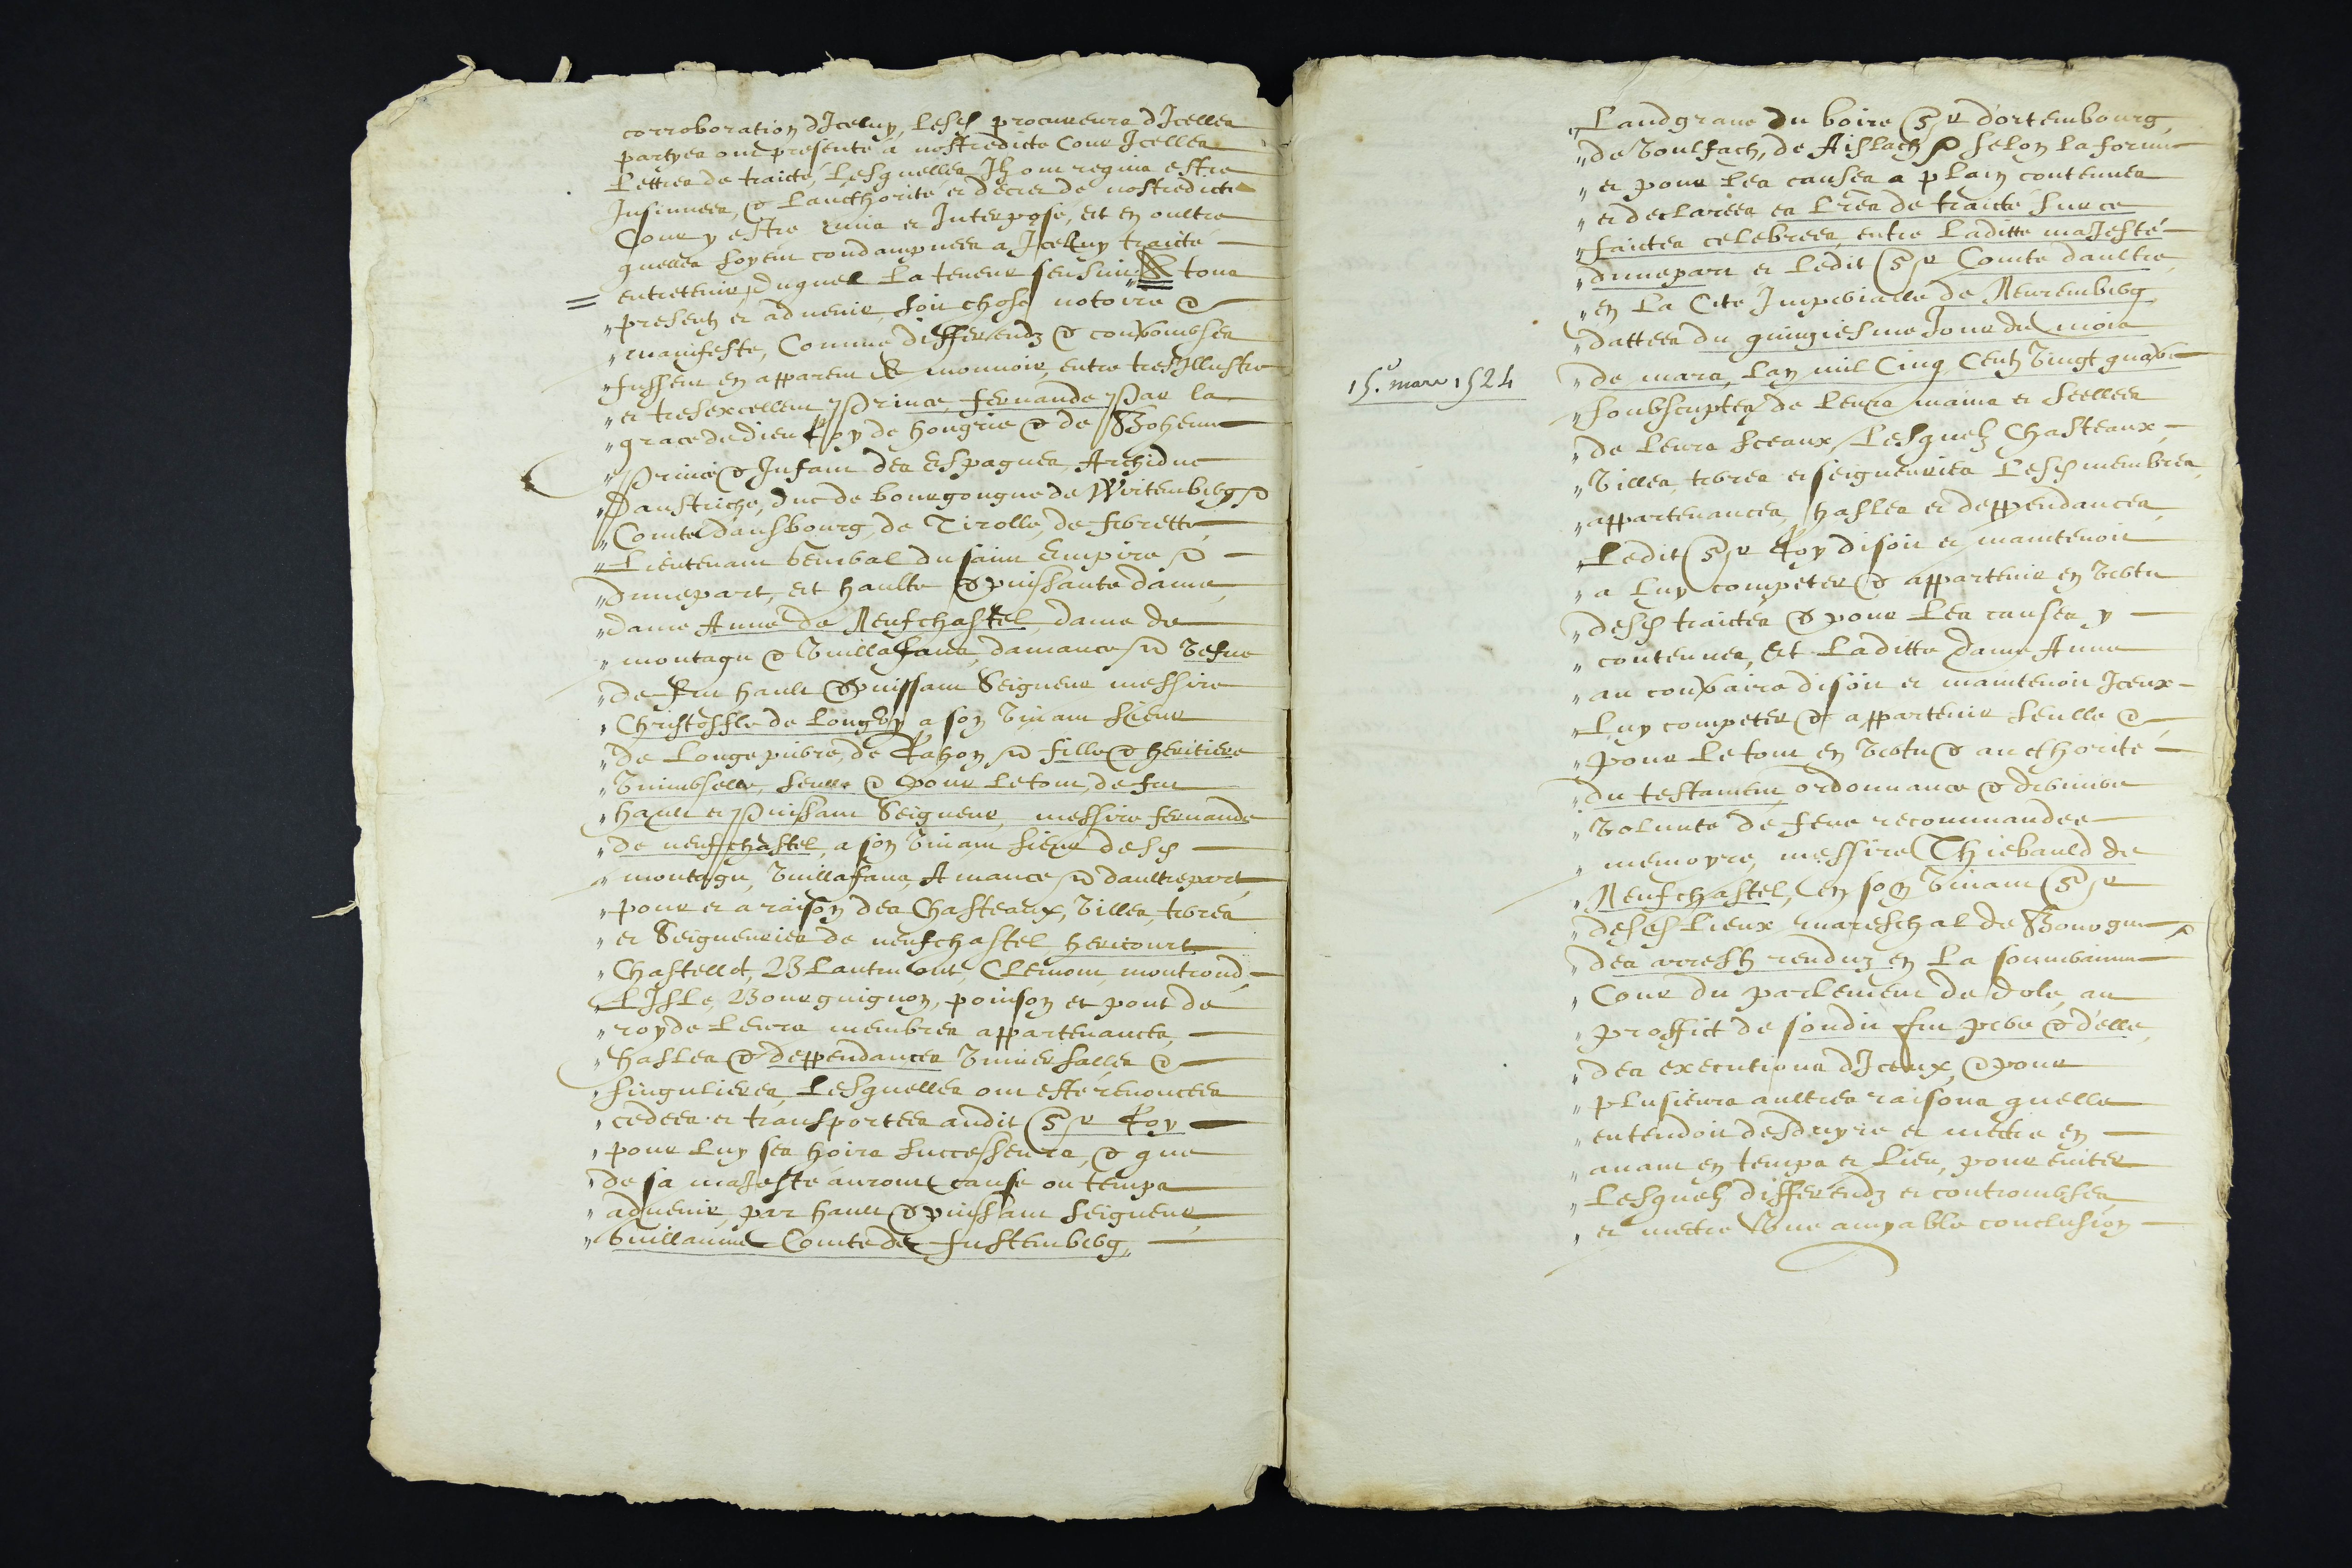 corroboration d'Iceluy, lesd procureurs d'Icelles
partyes ont presenté a nostredicte Cour Icelles
lettres de traicté, lesquelles Ilz ont requis estre
Insinuees, & laucthorité et decret de nostredicte
Cour y estre mis et Interposé, et en oultre
quelles soyent condampnees a Icelluy traicté
entretenir, duquel la teneur sensuit A tous
presentz et advenir, soit chose notoire &
manifeste, Comme differendz & controverses
fussent en apparent de mouvoir, entre tresIllustre
et tresexcellent Prince, fernande par la
grace de dieu Roy de hongrie & de Boheme
Prince & Infant des Espagnes, Archiduc
Daustriche, duc de bourgongne de Wirtemberg
Comte dausbourg, de Tirolle, de ferrette,
Lieutenant General du saint Empire
dunepart, et haulte & puissante dame,
dame Anne de Neufchastel, dame de
montagu & Vuillafans, damance Vefve
de feu hault & puissant Seigneur messire
Christoffle de longvy, a son vivant sieur
de Longepierre, de Rahon fille & heritiere
Vniverselle, seulle & pour le tout, de feu
hault et Puissant Seigneur, messire fernande
de neufchastel, a son vivant sieur desd
montagu, Vuillafans, Amance daultrepart,
pour et a raison des Chasteaux, Villes, terres
et Seigneuries de neufchastel, hericourt
Chastellot, Blantmont, Clemont, montrond,
LIsle, Bourguignon, poinson et pont de
royde leurs membres appartenances,
hasles & deppendances Vniverselles &
singulieres, Lesquelles ont esté renoncees
cedees et transportees audit Sgr Roy
pour luy ses hoirs successeurs, & que
de sa majesté auront cause ou temps
advenir, par hault & puissant seigneur,
Guillaume Comte de fustemberg,
Landgrave du boire Sgr d'ortembourg,
de Voulfach, de Aislach selon la forme
et pour les causes a plain contenues
et declarees es lres de traicté sur ce
faictes celebrees, entre laditte maJesté
dunepart et ledit Sgr Comte daultre,
en la Cité Imperialle de Neuremberg
dattees du quinziesme Jour du mois
15.e mars 1524
de mars, lan mil Cinq Centz Vingt quatre
soubscriptes de leurs mains et seellees
de leurs sceaux, Lesquelz Chasteaux,
Villes, terres et seigneuries lesd membres,
appartenances, hasles et deppendances,
Ledit Sgr Roy disoit et maintenoit
a luy compéter & appartenir en Vertu
desd traictés & pour les causes y
contenues, Et laditte dame Anne
au contraire disoit et maintenoit Iceux
Luy competer & appartenir seulle &
pour le tout en Vertu & aucthorité
du testament, ordonnance & derniere
Volunté de feue recommandee
memoyre, messire Thiebauld de
Neufchastel, en son vivant Sgr
desd lieux mareschal de Bourgne
des arrestz renduz en la souveraine
Cour du parlement de dole, au
proffict de sondit feu pere & d'elle,
des executions d'Iceux, & pour
plusieurs aultres raisons quelle
entendoit desduyre et mettre en
avant en temps et lieu, pour eviter
Lesquelz differendz et controverses,
et mettre Vne amyable conclusion